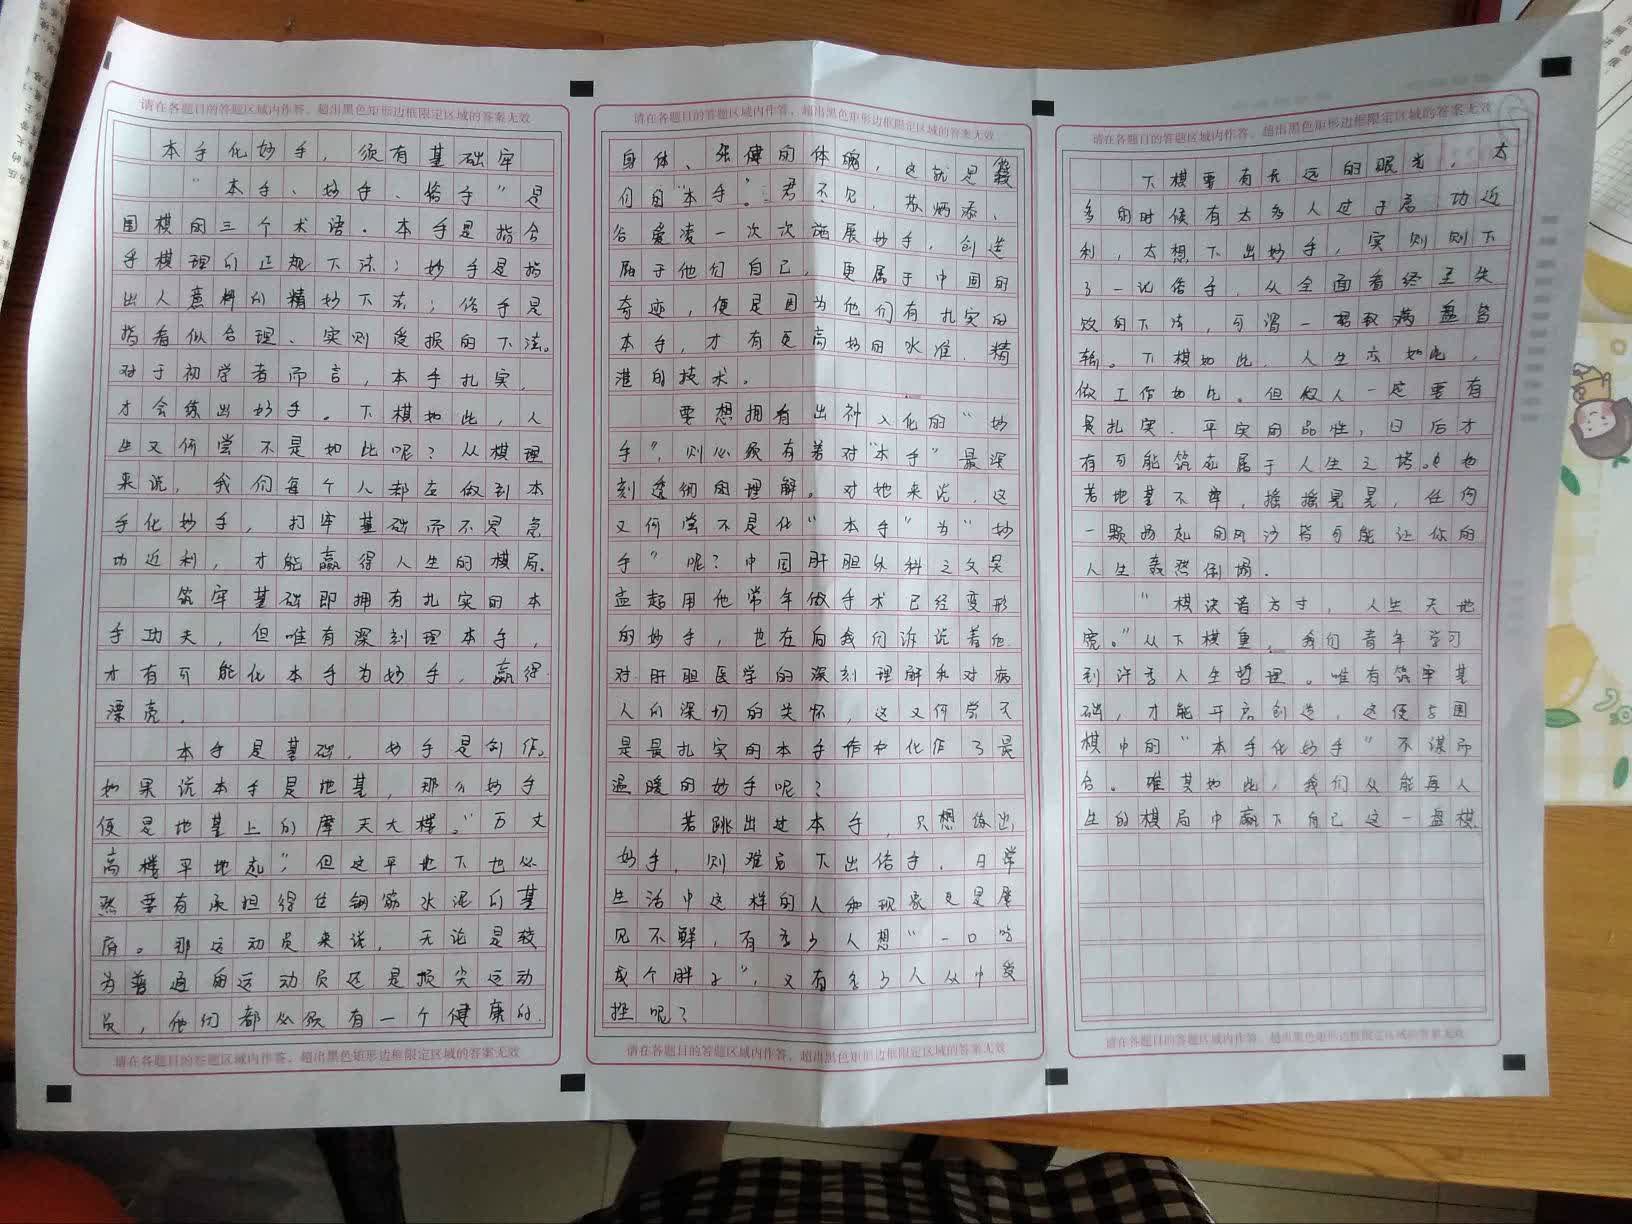 请在各题目的答题区域内作答，超出黑色矩形边框限定区域的答案无效
本手化妙手，须有基础牢
“本手、妙手、俗手”是
围棋的三个术语。本手是指合
乎棋理的正规下法；妙手是指
出人意料的精妙下法；俗手是
指看似合理、实则受损的下法。
对于初学者而言，本手扎实，
才会练出妙手。下棋如此，人
生又何尝不是如此呢？从棋理
来说，我们每个人都在做到本
手化妙手，打牢基础而不是急
功近利，才能赢得人生的棋局。
筑牢基础即拥有扎实的本
手功夫，但唯有深刻理本手，
才有可能化本手为妙手，赢得
漂亮。
本手是基础，妙手是创作。
如果说本手是地基，那么妙手
便是地基上的摩天大楼。“万丈
高楼平地起”，但这平地下也必
然要有承担得住钢筋水泥的基
府。那运动员来说，无论是较
为普通的运动员还是顶尖运动
员，他们都必须有一个健康的
请在各题目的答题区域内作答，超出黑色矩形边框限定区域的答案无效
请在各题目的答题区域内作答，超出黑色矩形边框限定区域的答案无效
身体、强健的体魄，这就是我
们的“本手”。君不见，苏炳添、
谷爱凌一次次施展妙手，创造
属于他们自己，更属于中国的
奇迹，便是因为他们有扎实的
本手，才有更高妙的水准、精
准的技术。
要想拥有出神入化的“妙
手”，则必须有着对“本手”最深
刻透彻的理解。对她来说，这
又何尝不是化“本手”为“妙
手”呢？中国肝胆外科之父吴
孟超用他常年做手术已经变形
的妙手，也在向我们诉说着他
对肝胆医学的深刻理解和对病
人的深切的关怀，这又何尝不
是最扎实的本手作力化作了最
温暖的妙手呢？
若跳出过本手，只想做出
妙手，则难免下出俗手。日常
生活中这样的人和现象更是屡
见不鲜，有多少人想“一口吃
成个胖子”，又有多少人从中受
挫呢？
请在各题目的答题区域内作答，超出黑色矩形边框限定区域的答案无效
请在各题目的答题区域内作答，超出黑色矩形边框限定区域的答案无效
下棋要有长远的眼光，太
多的时候有太多人过于急功近
利，太想下出妙手，实则则下
了一记俗手，从全面看终至失
败的下法，可谓一着满盘皆
输。下棋如此，人生亦如此，
做工作如此。但做人一定要有
是扎实、平实的品性，日后才
有可能筑起属于人生之塔。也
若地基不牢，摇摇晃晃，任何
一颗扬起的风沙皆可能让你的
人生轰然倒塌。
“棋诀着方寸，人生天地
宽。”从下棋里，我们青年学习
到许多人生哲理。唯有筑牢基
础，才能开启创造，这便与围
棋中的“本手化妙手”不谋而
合。唯其如此，我们从能再人
生的棋局中赢下自己这一盘棋
请在各题目的答题区域内作答，超出黑色矩形边框限定区域的答案无效